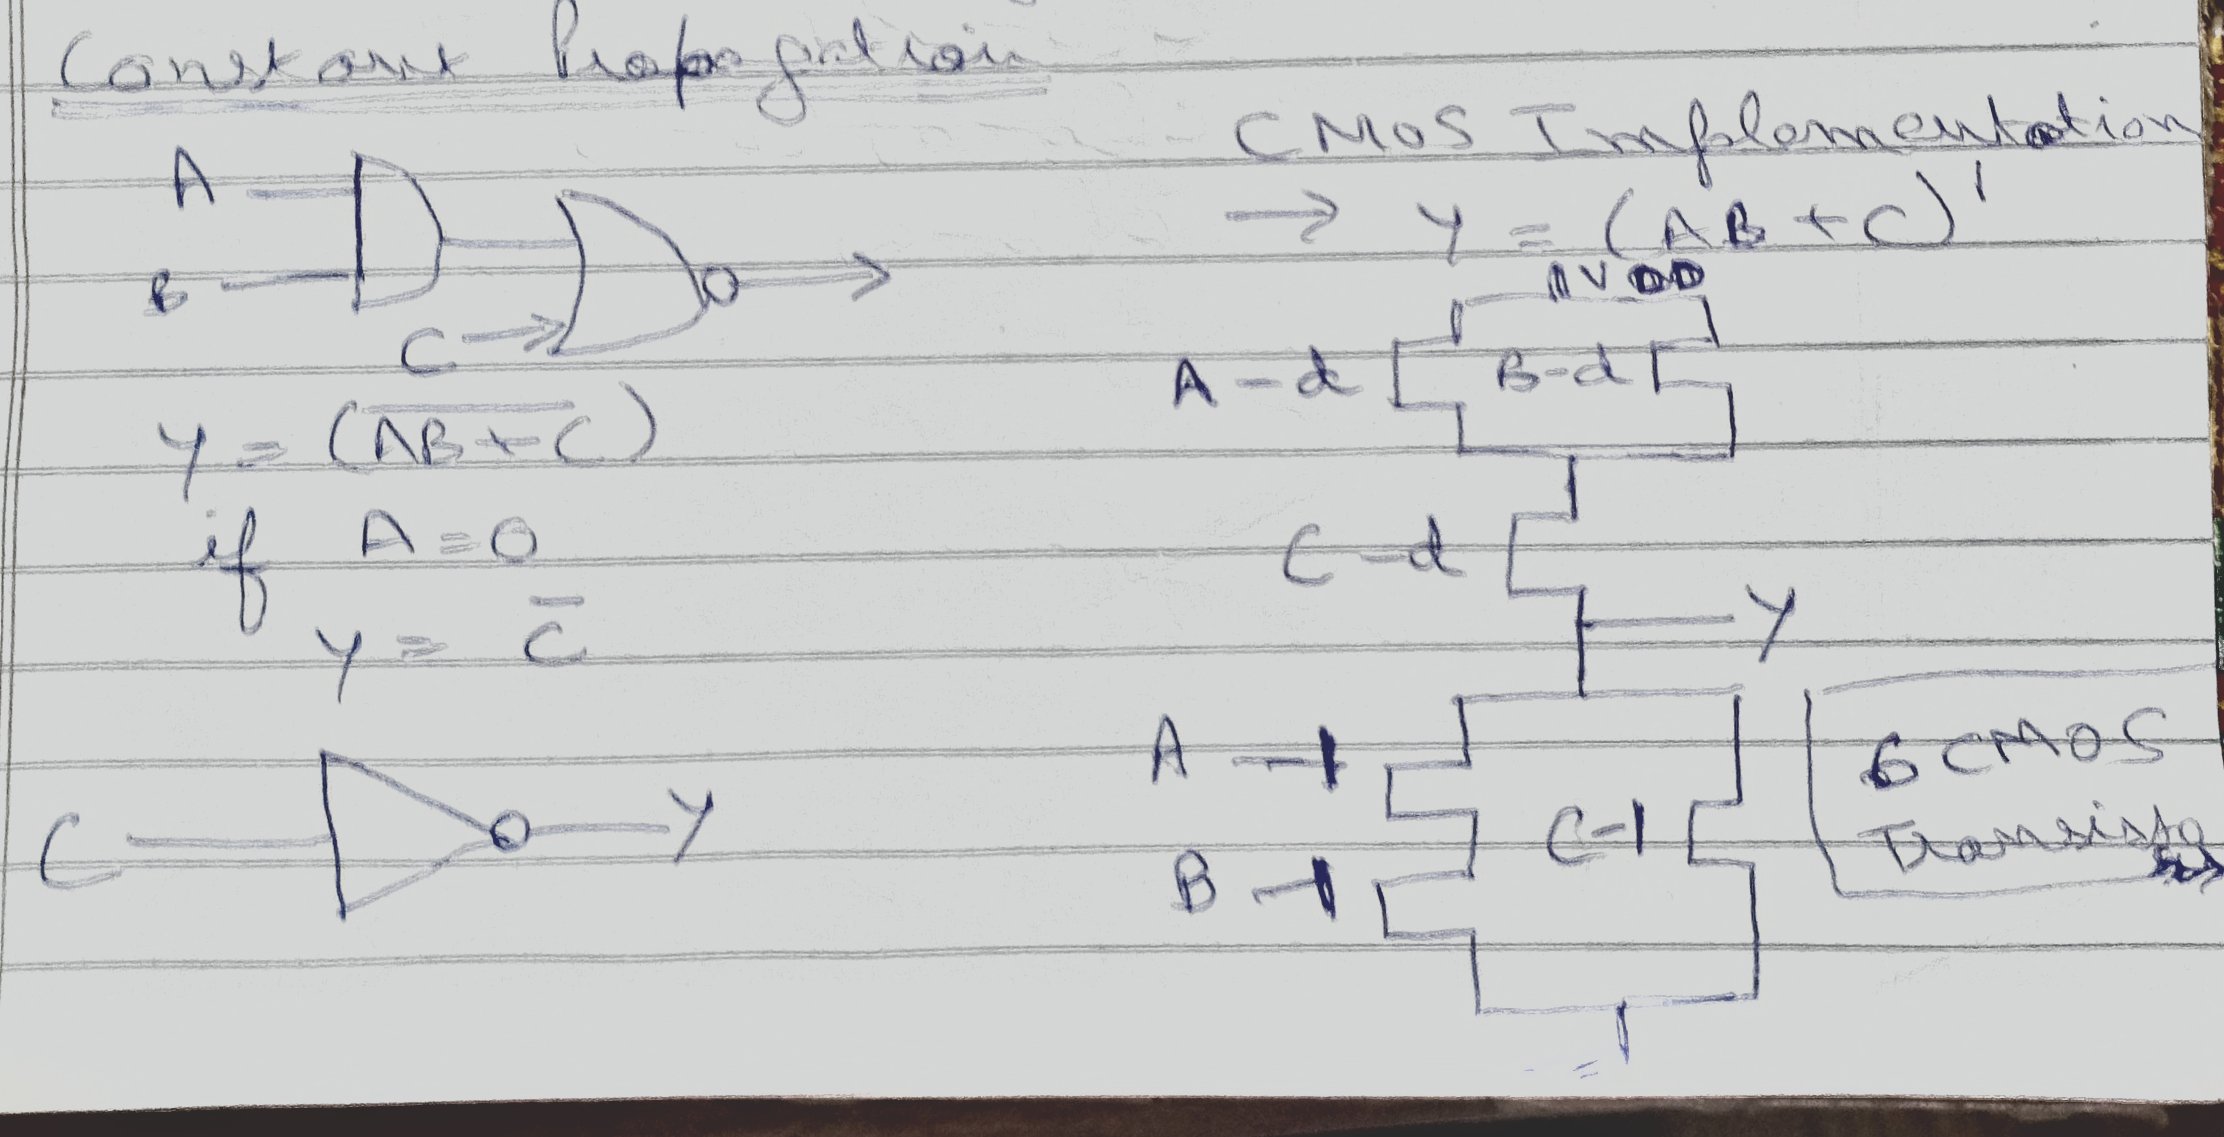 Constant Propagation
A
B
C
Y = (\overline{AB + C})
if A = 0
Y = \overline{C}
C Y
CMOS Implementation
→ Y = (AB + C)'
VDD
A B
C
Y
A
C
B
6 CMOS